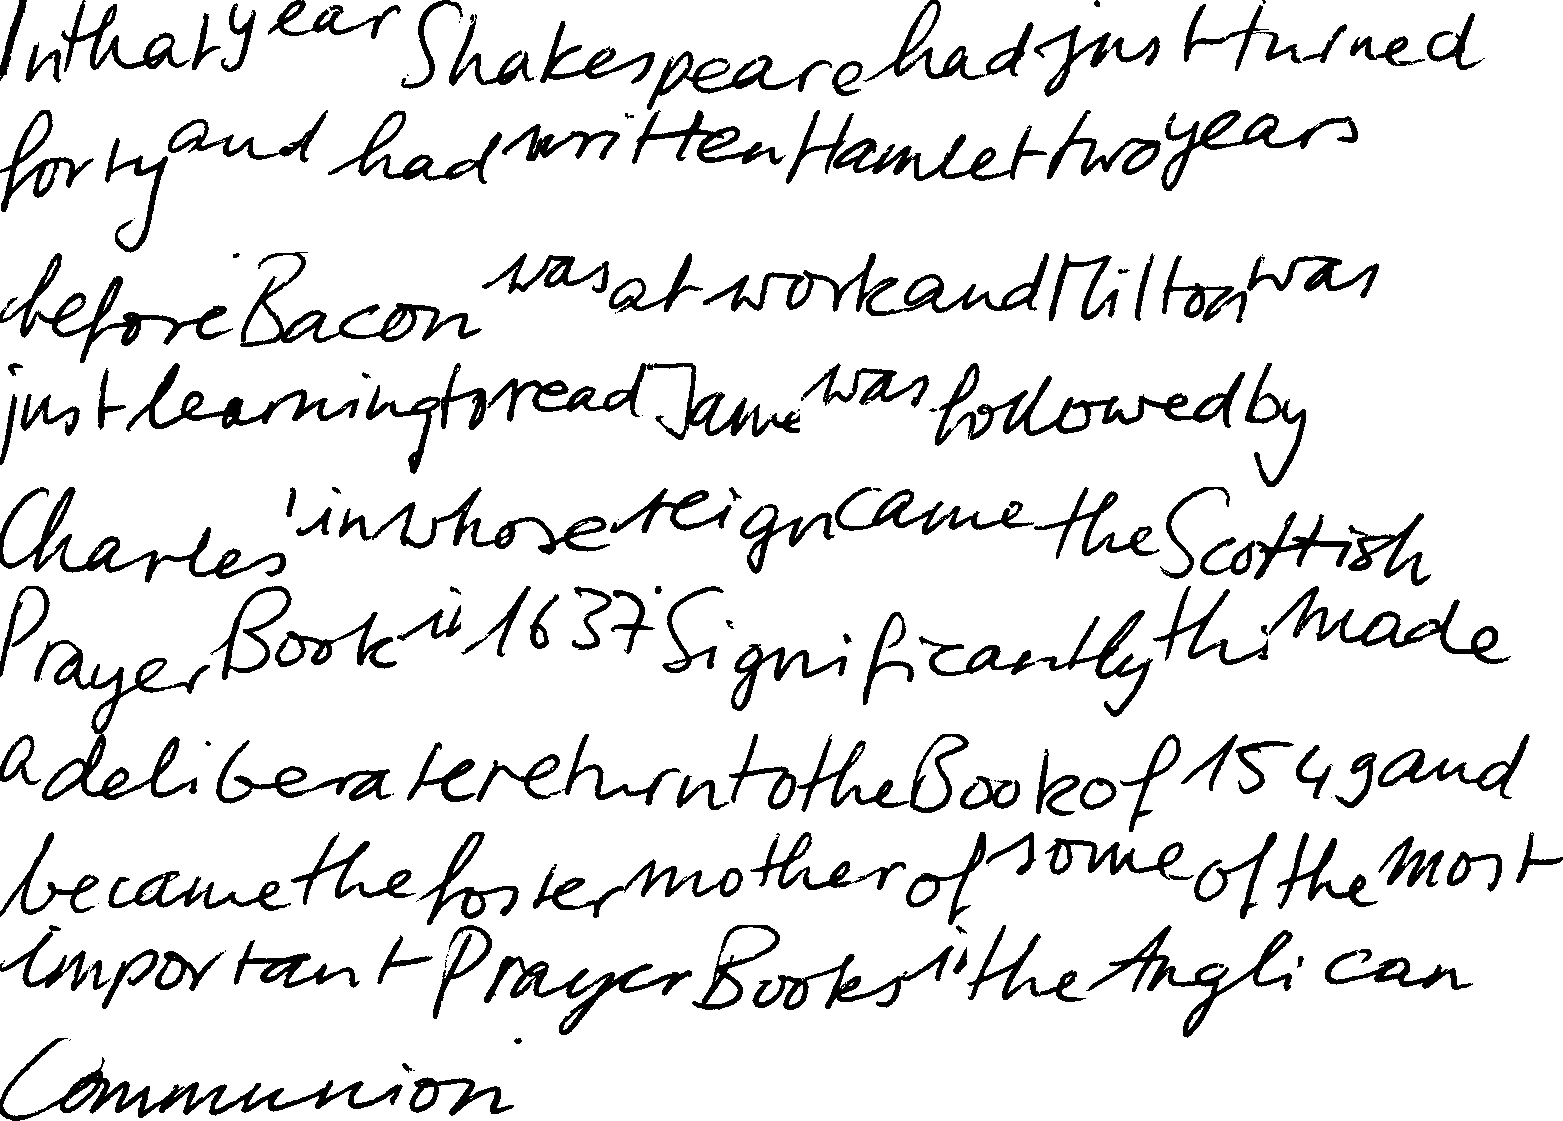 In that year Shakespeare had just turned
forty and had written Hamlet two years
before. Bacon was at work and Milton was
just learning to read. James was followed by
Charles I in whose reign came the Scottish
Prayer Book in 1637. Significantly this made
a deliberate return to the Book of 1549 and
became the foster mother of some of the most
important Prayer Books in the Anglican
Communion.